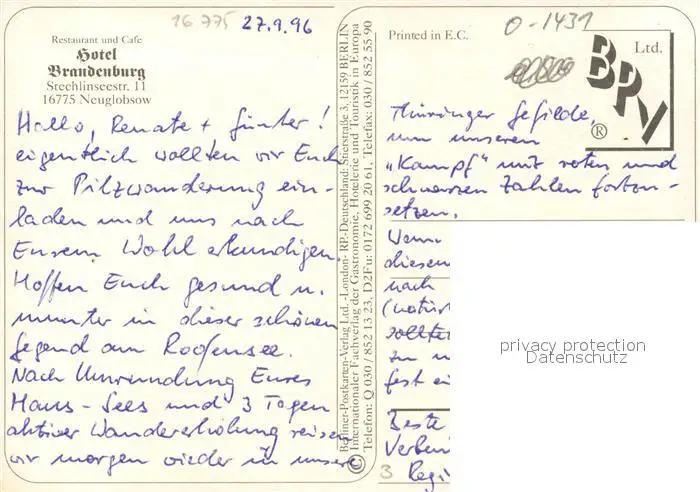 16 775 27.9.96
Restaurant und Cafe
Hotel
Brandenburg
Stechlinseestr. 11
16775 Neuglobsow
Hallo, Renate + Günter!
eigentlich wollten wir Euch
zur Pilzwanderung ein-
laden und uns nach
Eurem Wohl erkundigen.
Hoffen Euch gesund u.
munter in dieser schönen
Gegend am Roofensee.
Nach Umrundung Eures
Haus-Sees und 3 Tagen
aktiver Wandererholung reisen
wir morgen wieder in unsere
Berliner-Postkarten-Verlag Ltd. -London- RP.-Deutschland: Stierstraße 3, 12159 BERLIN
Internationaler Fachverlag der Gastronomie, Hotelerie und Touristik in Europa
Telefon: Q 030 / 852 13 23, D2Fu: 0172 699 20 61, Telefax: 030 / 852 55 90
©
Printed in E.C.
0-1431
BPV Ltd.
®
Thüringer Gefilde,
um unseren
„Kampf" mit roten und
schwarzen Zahlen fortzu-
setzen.
Wenn
diesen
nach
(natür
sollten
zu u
fest ei
Beste
Verbein
3 Regi
privacy protection
Datenschutz